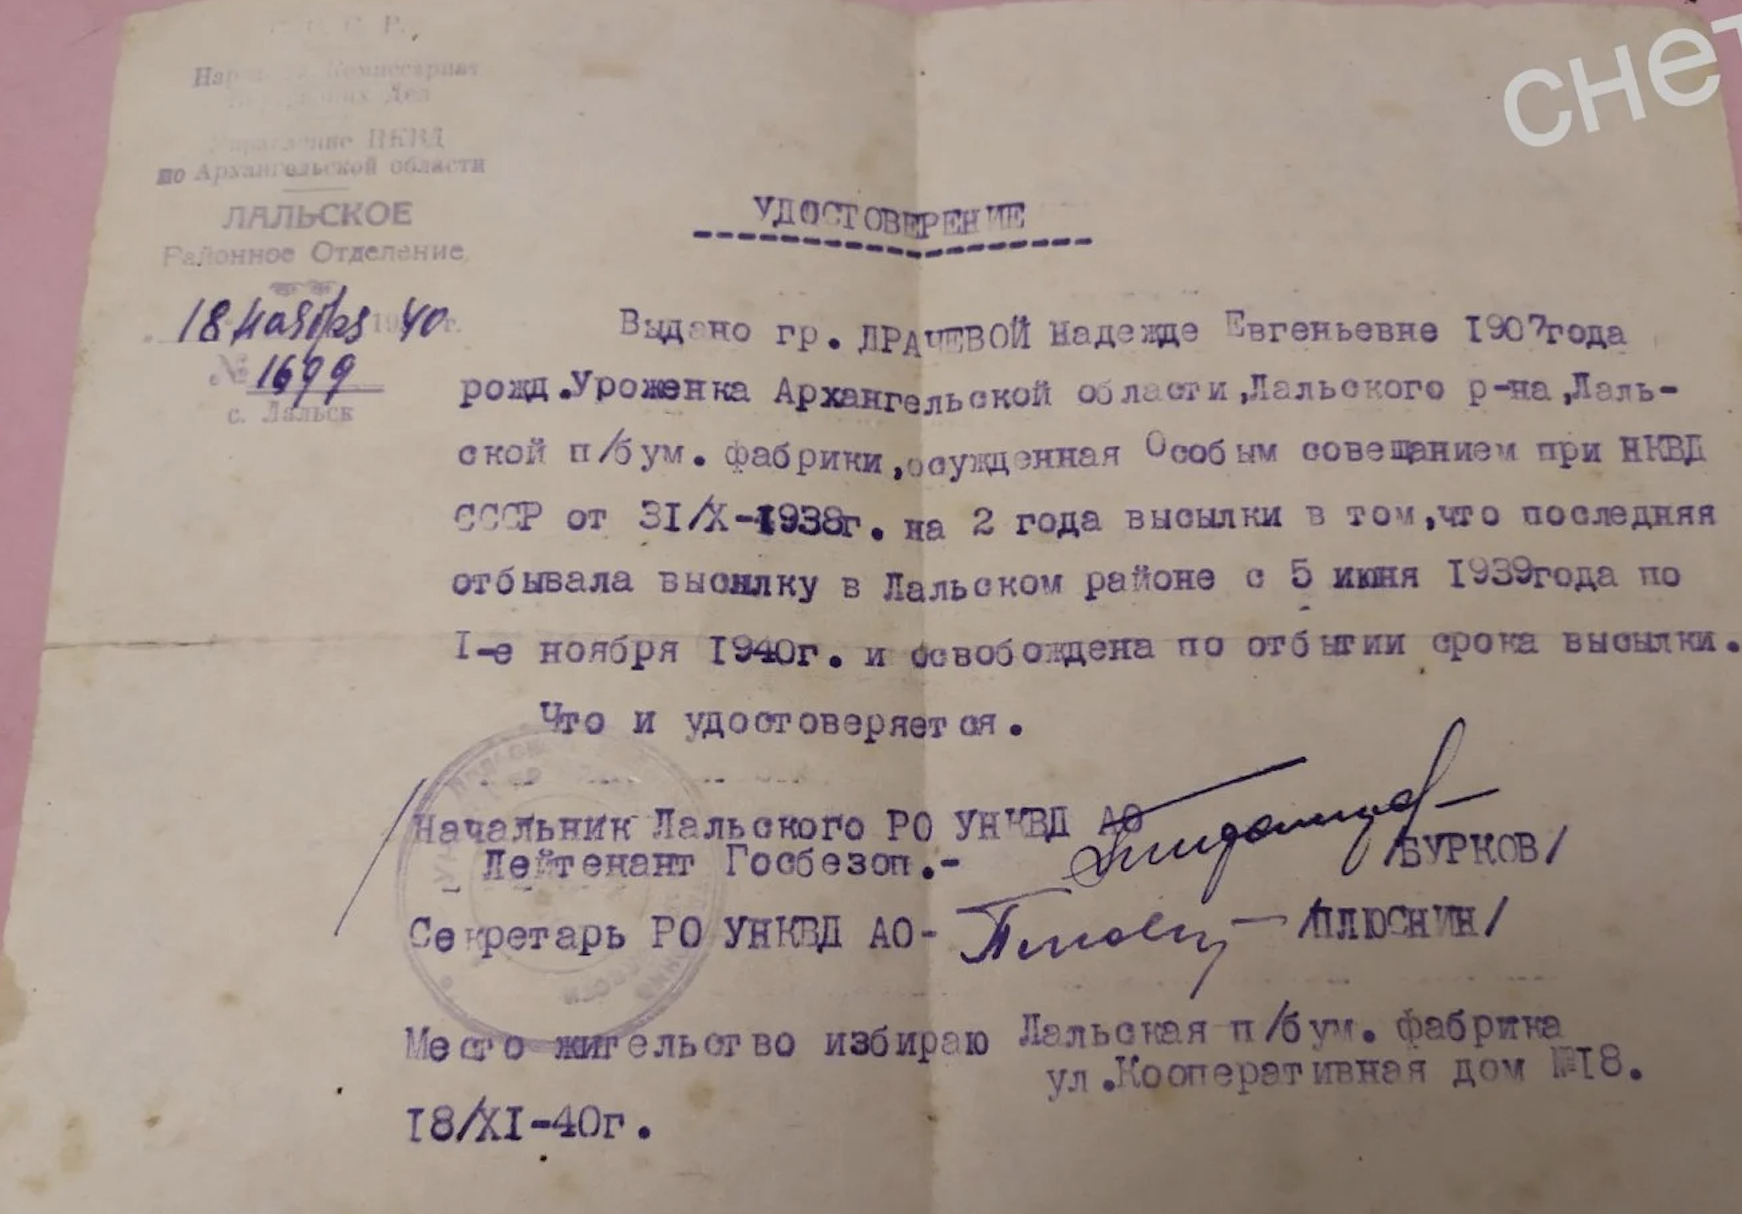 С.С.С.Р.
Народный Комиссариат
Внутренних Дел
Управление НКВД
по Архангельской области
ЛАЛЬСКОЕ
Районное Отделение
18 ноября 1940 г.
№ 1699
с. Лальск
снет
УДОСТОВЕРЕНИЕ
Выдано гр. ДРАЧЕВОЙ Надежде Евгеньевне 1907года
рожд.Уроженка Архангельской области,Лальского р-на,Лаль-
ской п/бум. фабрики,осужденная Особым совещанием при НКВД
СССР от 31/X-1938г. на 2 года высылки в том,что последняя
отбывала высылку в Лальском районе с 5 июня 1939года по
I-е ноября 1940г. и освобождена по отбытии срока высылки.
Что и удостоверяется.
Начальник Лальского РО УНКВД АО
Лейтенант Госбезоп.- /БУРКОВ/
Секретарь РО УНКВД АО- /ПЛЮСНИН/
Место жительство избираю Лальская п/бум. фабрика
ул.Кооперативная дом №18.
18/XI-40г.